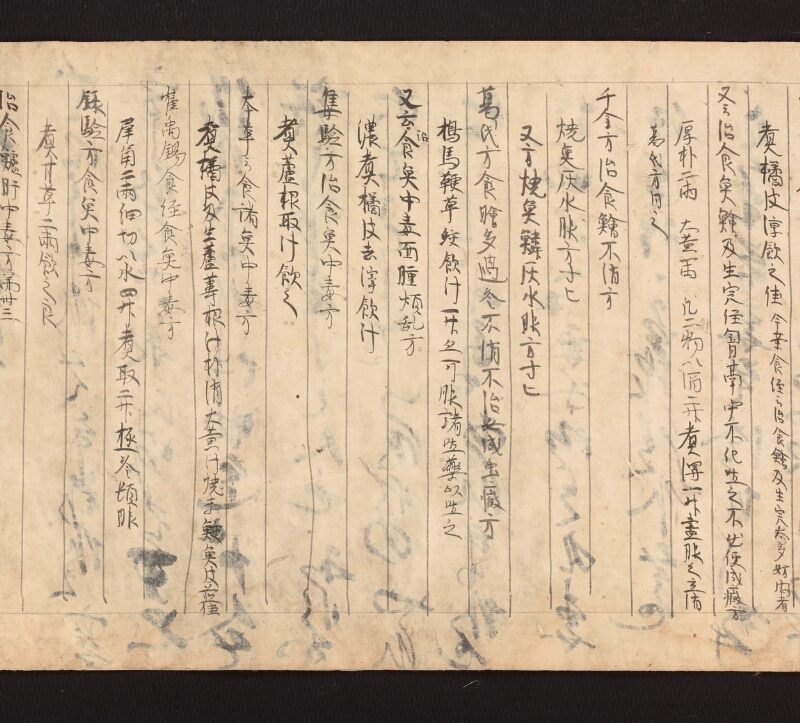 煮橘皮渟飲之佳 今案食經云治食鱠及生完太多妨悶者
又云治食魚鱠及生完住胸膈中不化吐之不出便成癥方
厚朴二兩 大黄一兩 凡二物以酒二升煮得一升盡服之立消
葛氏方同之
千金方治食鱠不消方
燒魚灰水服方寸匕
又方燒魚鱗灰水服方寸匕
葛氏方食鱠多過冷不消不治必成虫癥方
搗馬鞭草絞飲汁一升亦可服諸吐藥以吐之
又云治食魚中毒面腫煩乱方
濃煮橘皮去滓飲汁
集驗方治食魚中毒方
煮蘆根取汁飲之
本草云食諸魚中毒方
煮橘皮及生蘆葦根汁朴消大黄汁燒末鮫魚皮並佳
崔禹錫食經食魚中毒方
犀角二兩細切以水四升煮取二升極冷頓服
録驗方食魚中毒方
煮甘草二兩飲之良
治食鱸肝中毒方第卌三